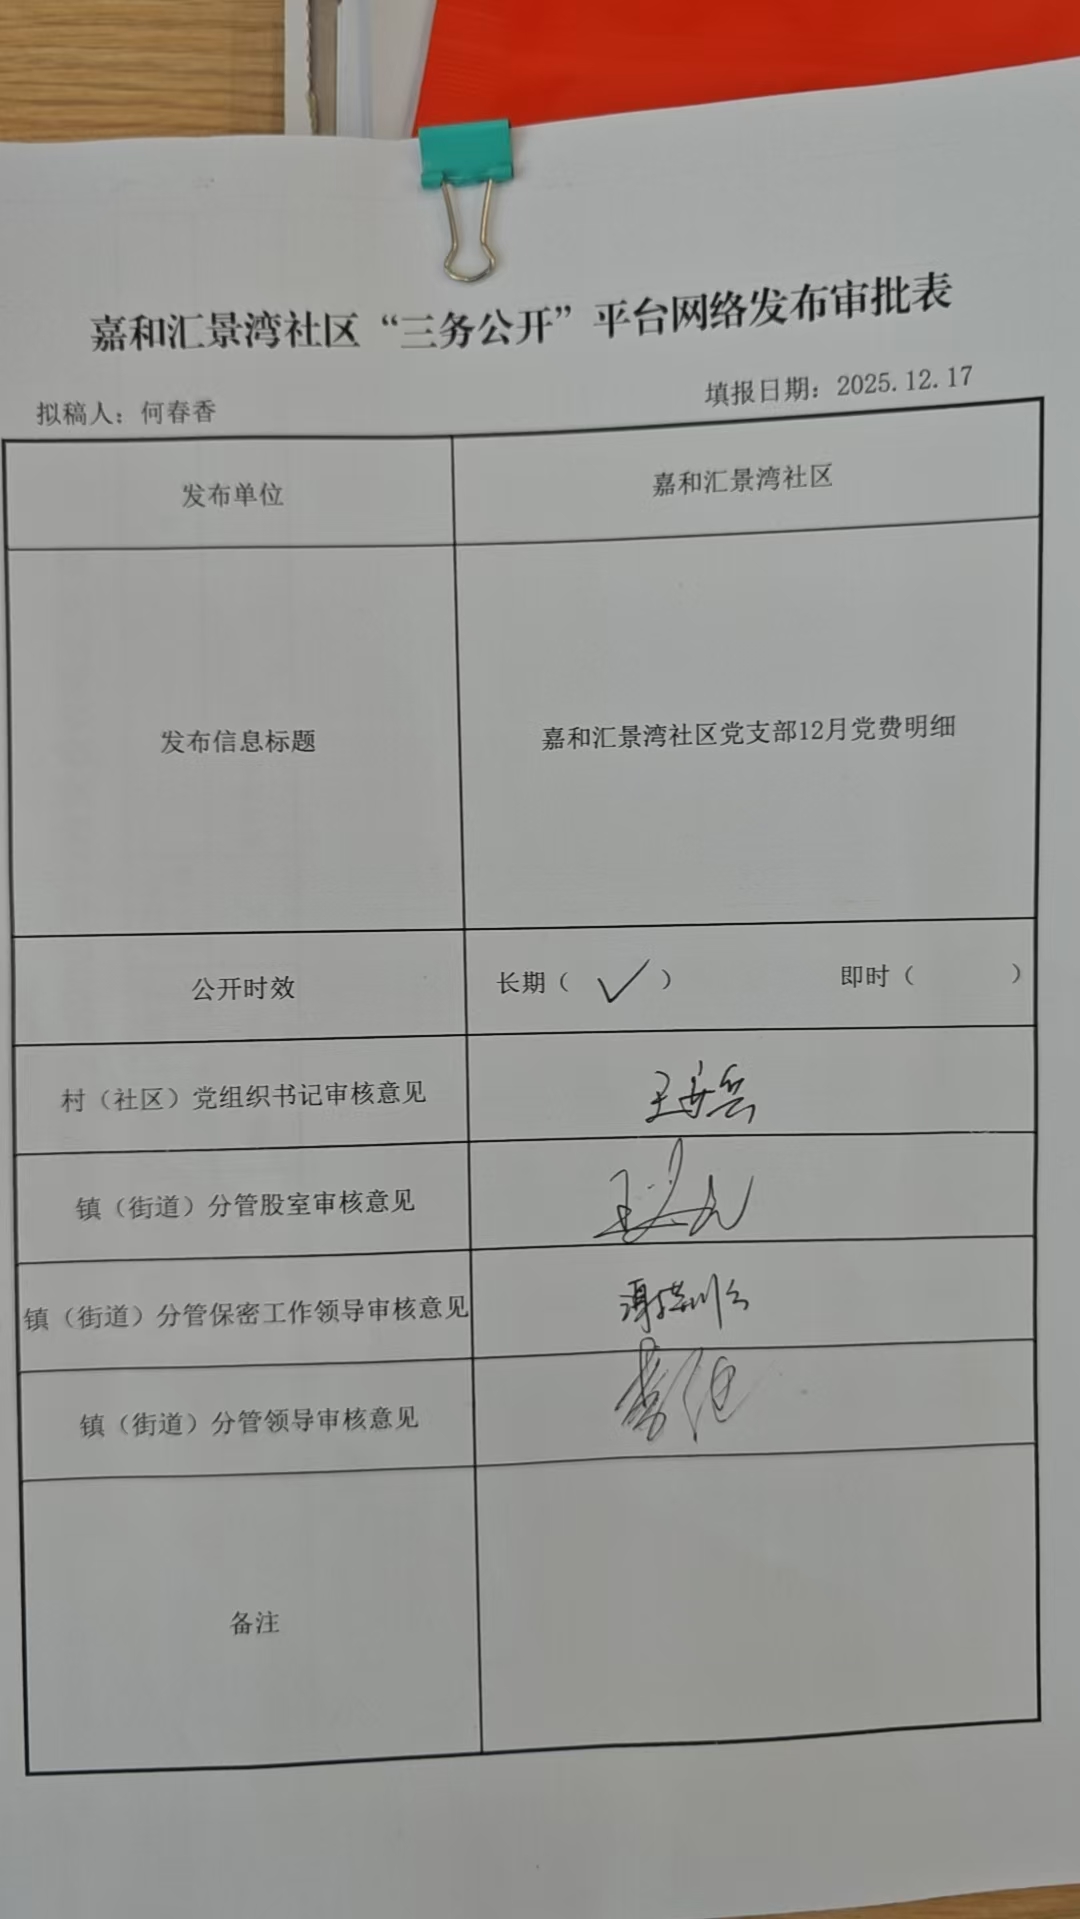 嘉和汇景湾社区“三务公开”平台网络发布审批表
拟稿人：何春香
填报日期：2025.12.17
发布单位
嘉和汇景湾社区
发布信息标题
嘉和汇景湾社区党支部12月党费明细
公开时效
长期（ ✓ ） 即时（ ）
村（社区）党组织书记审核意见
镇（街道）分管股室审核意见
镇（街道）分管保密工作领导审核意见
镇（街道）分管领导审核意见
备注